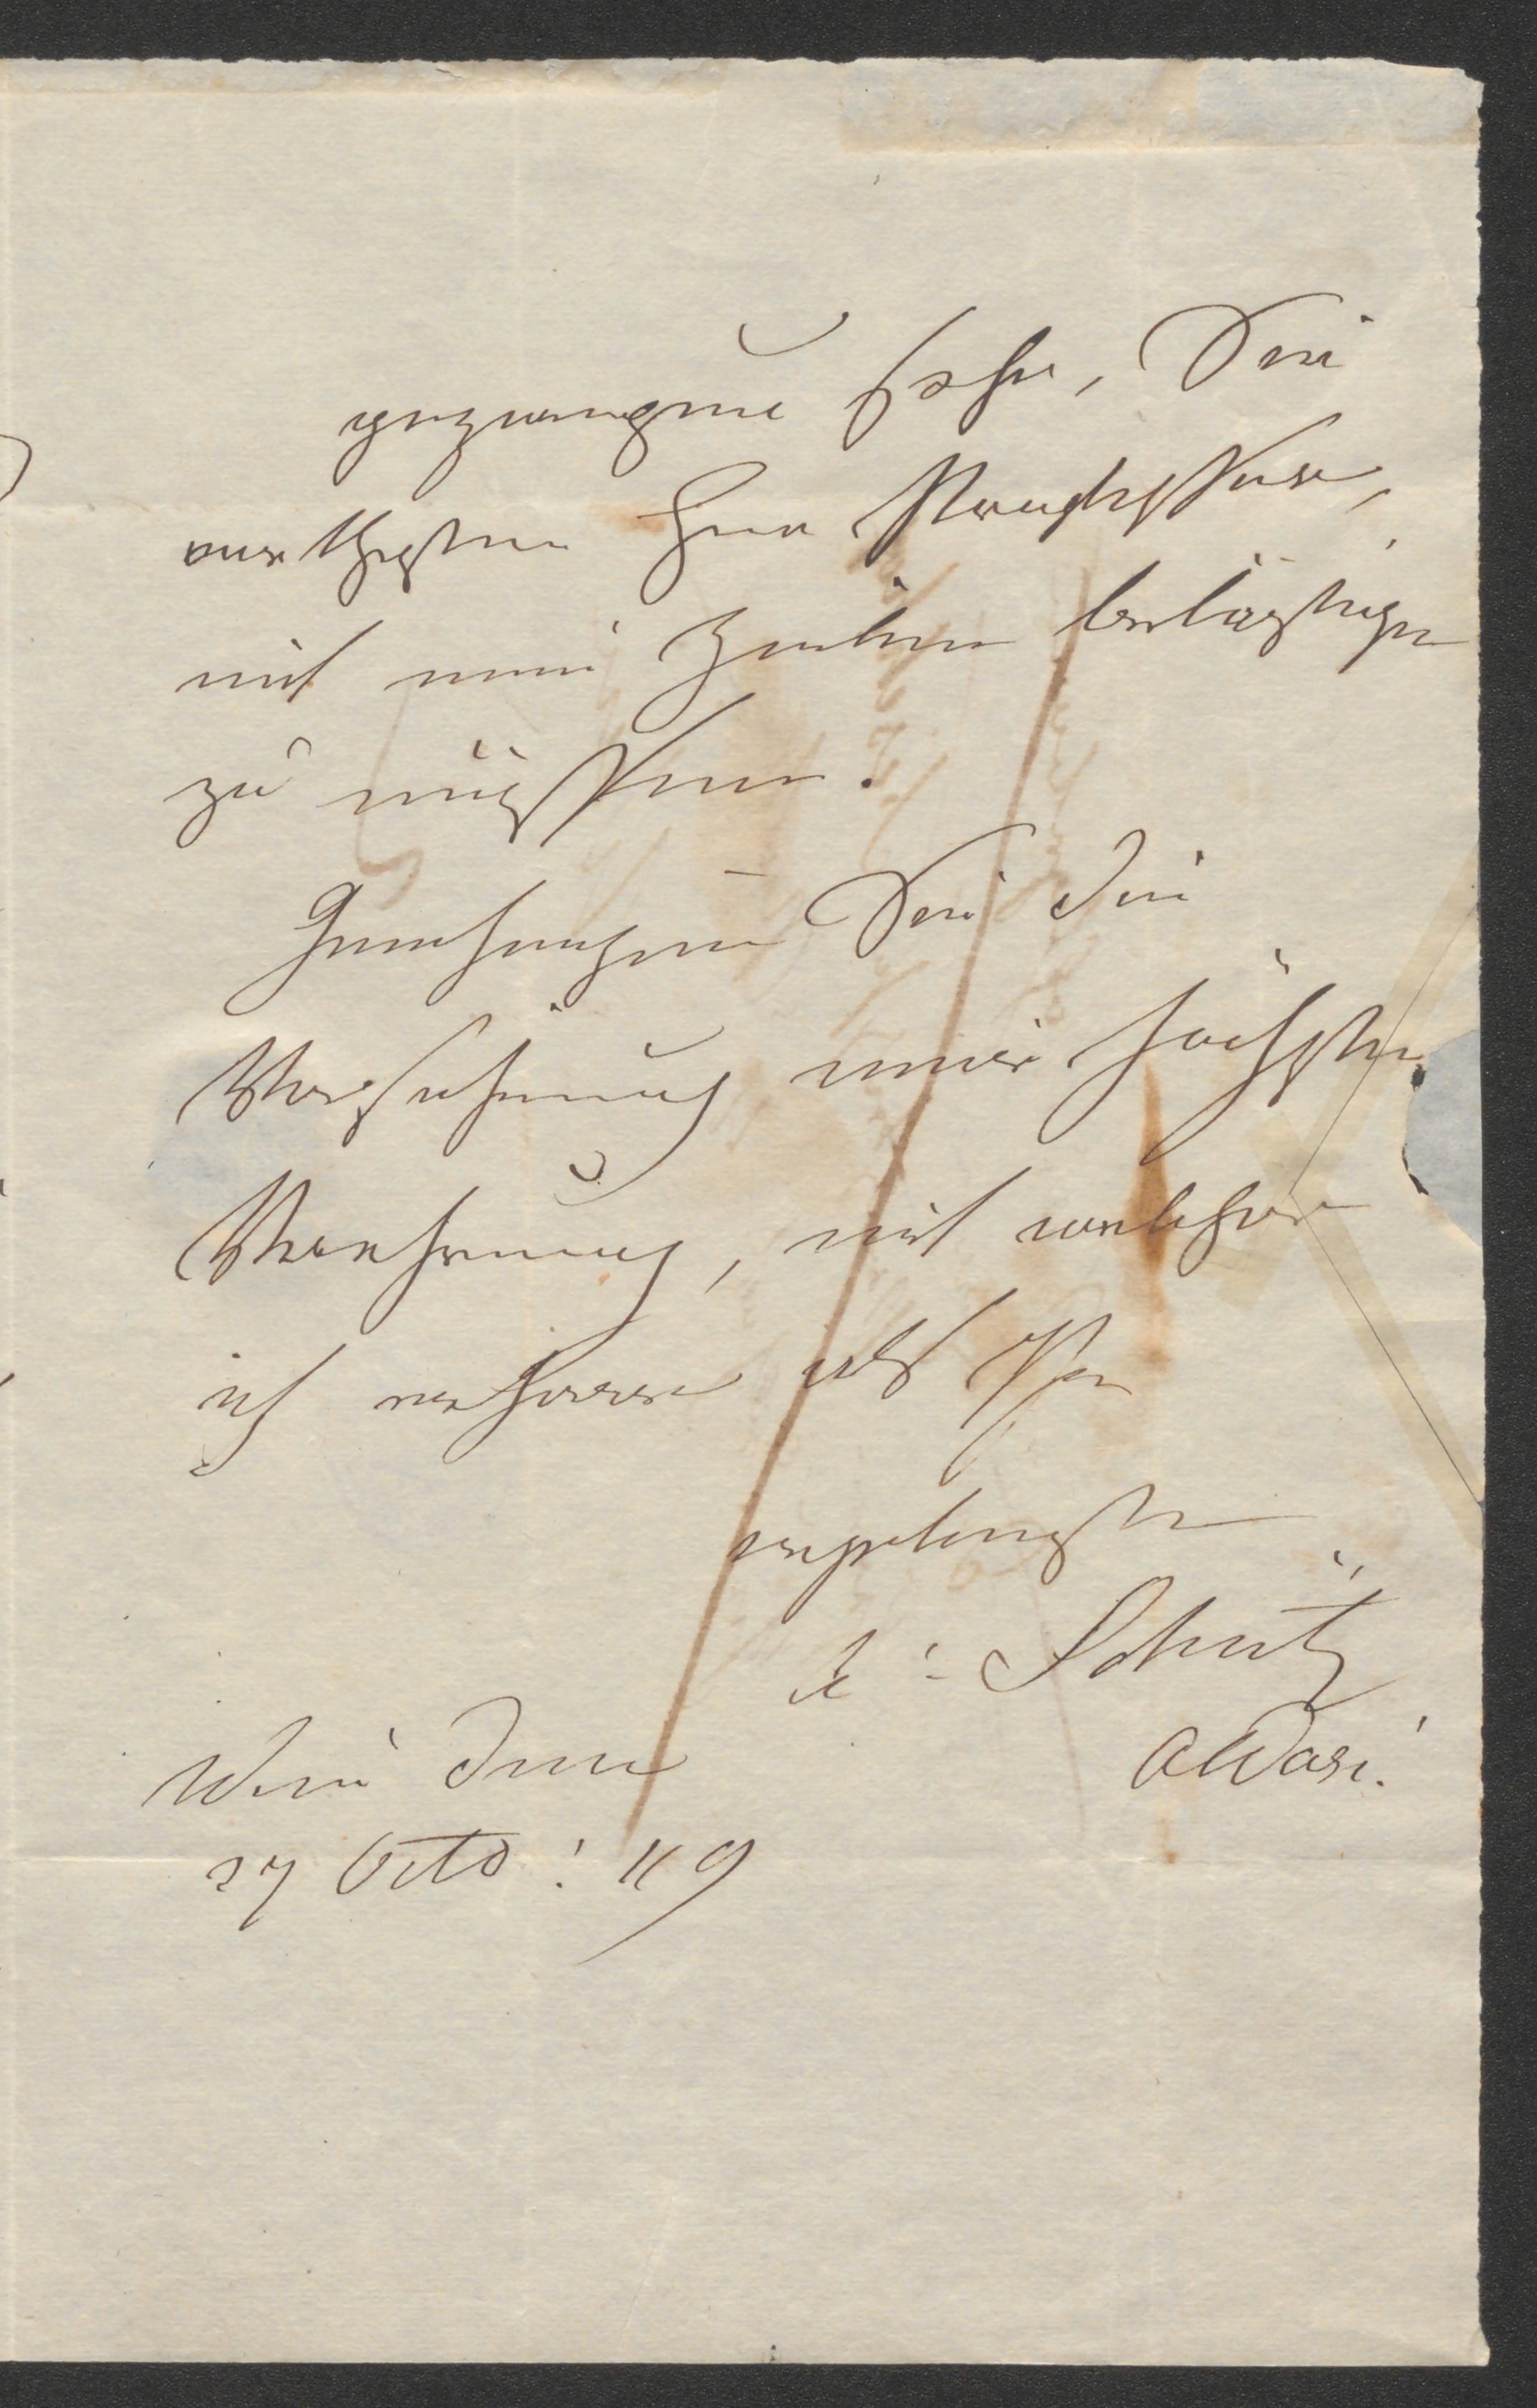 gezwungen sehe, Sie
werthester Herr Professor,
mit mein Zeilen belästigen
zu müssen.
Genehmigen Sie die
Versicherung meiner höchsten
Verehrung, mit welcher
ich verharre als Ihr
ergebenster
Schütz
Wien den
27 Octo: 49